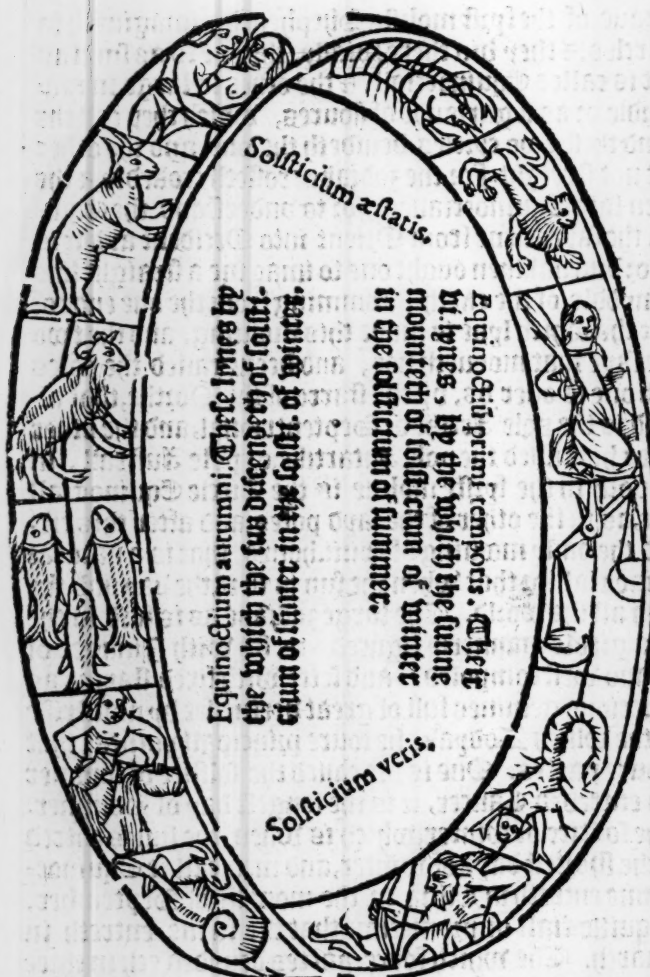 Solſticium æſtatis.
Equinoctiū primi Theſe
ignes by the which the ſunne
mounteth of ſolſticium of winter
in the ſolſticium of ſummer.
Equinoctium autumni Theſe ſynes by
the which the ſun diſcendeth of ſolſti-
cium of ſumer in the ſolſti. of winter.
Solſticium veris.